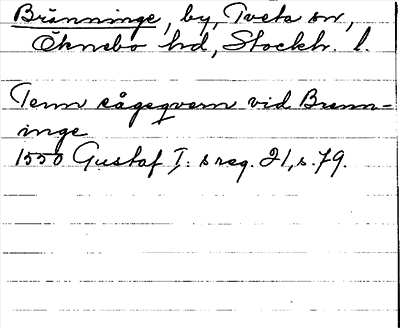 Bränninge, by, Tveta sn,
Öknebo hd, Stockh. l.
Tenn sågeqvarn vid Brenn-
inge
1550 Gustaf I:s reg. 21, s. 79.